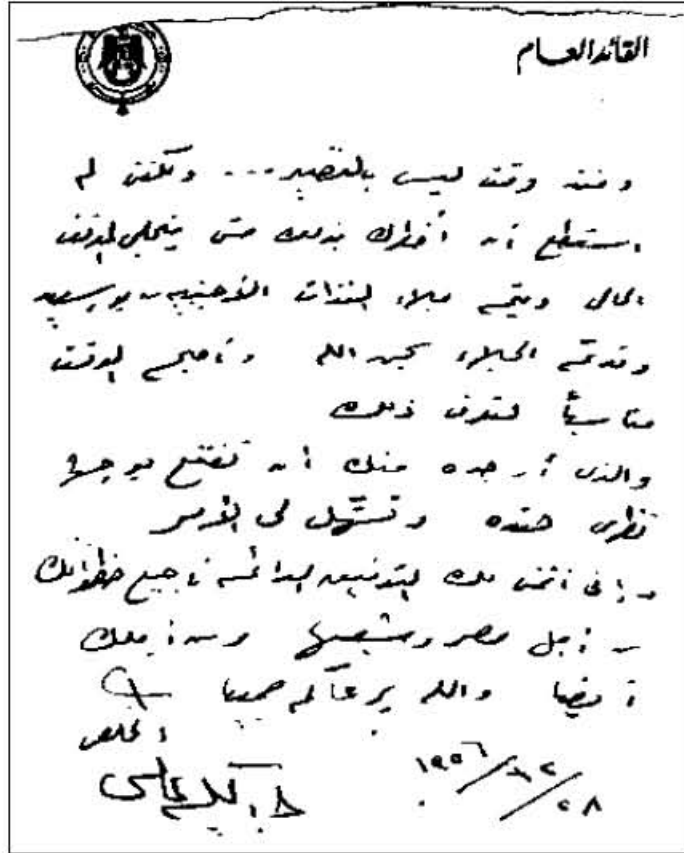 القائد العام
ومنذ وقت ليس بالقصير... ولكنني لم
استطع أن أخطرك بذلك حتى ينجلي الموقف
الحالي ويتم جلاء القوات الأجنبية من بورسعيد
وقد تم الجلاء بحمد الله وأصبح الوقت
مناسباً لتعرف ذلك
والذي أرجوه منك أن تقتنع بوجهة
نظري هذه وتسهّل لي الأمر
وإني أتمنى لك التوفيق الدائم في جميع خطواتك
من أجل مصر وشعبها ومن أجلك
أيضاً والله يرعاكم جميعاً
المخلص
١٩٥٦/١٢/٢٨